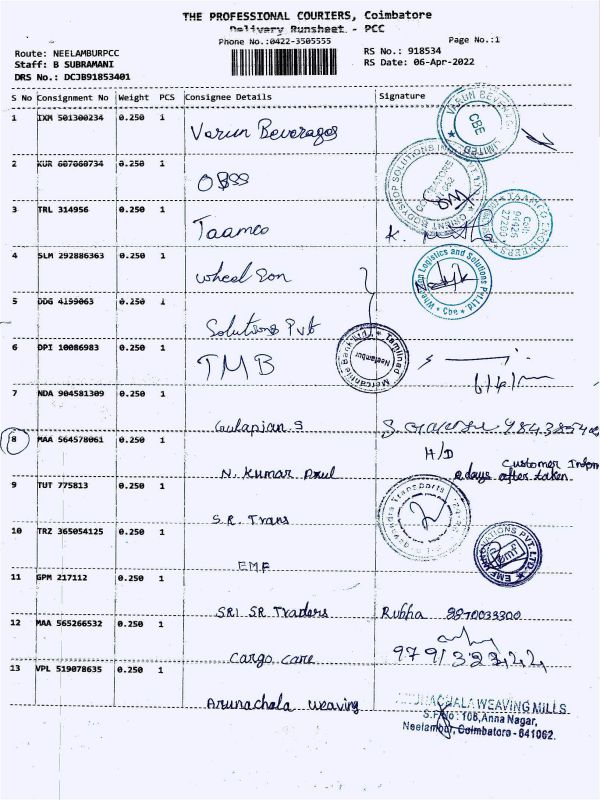 THE PROFESSIONAL COURIERS, Coimbatore
Delivery Runsheet. - PCC
Phone No.:0422-3505555
Page No.:1
Route: NEELAMBURPCC
RS No.: 918534
Staff: B SUBRAMANI
RS Date: 06-Apr-2022
DRS No.: DCJB91853401
S No Consignment No Weight PCS Consignee Details Signature
1 IXM 501300234 0.250 1 Varun Beverages
VARUN BEVERAGES LIMITED CBE
2 KUR 607060734 0.250 1 OBSS
ORIENT BODYSHOP SOLUTIONS
3 TRL 314956 0.250 1 Taamco
TAAMCO ENGINEERS
4 SLM 292886363 0.250 1 Wheel Son
Logistics and Solutions Pvt.Ltd. Cbe
5 DDG 4199063 0.250 1 Solutions Pvt
6 DPI 10086983 0.250 1 TMB
Tamilnad Mercantile Bank Ltd., Neelambur
7 NDA 904581309 0.250 1 Gulapjan S
8 MAA 564578061 0.250 1 N. Kumar
H/D
Customer
2 days after taken.
9 TUT 775813 0.250 1 S.R. Trans
Transports
10 TRZ 365054125 0.250 1 EMF
EMF INNOVATIONS PVT LTD. emf
11 GPM 217112 0.250 1 SRI SR Traders
Rubha
12 MAA 565266532 0.250 1 Cargo care
13 VPL 519078635 0.250 1 Arunachala weaving
ARUNACHALA WEAVING MILLS
S.F.No: 108,Anna Nagar,
Neelambur, Coimbatore - 641062.